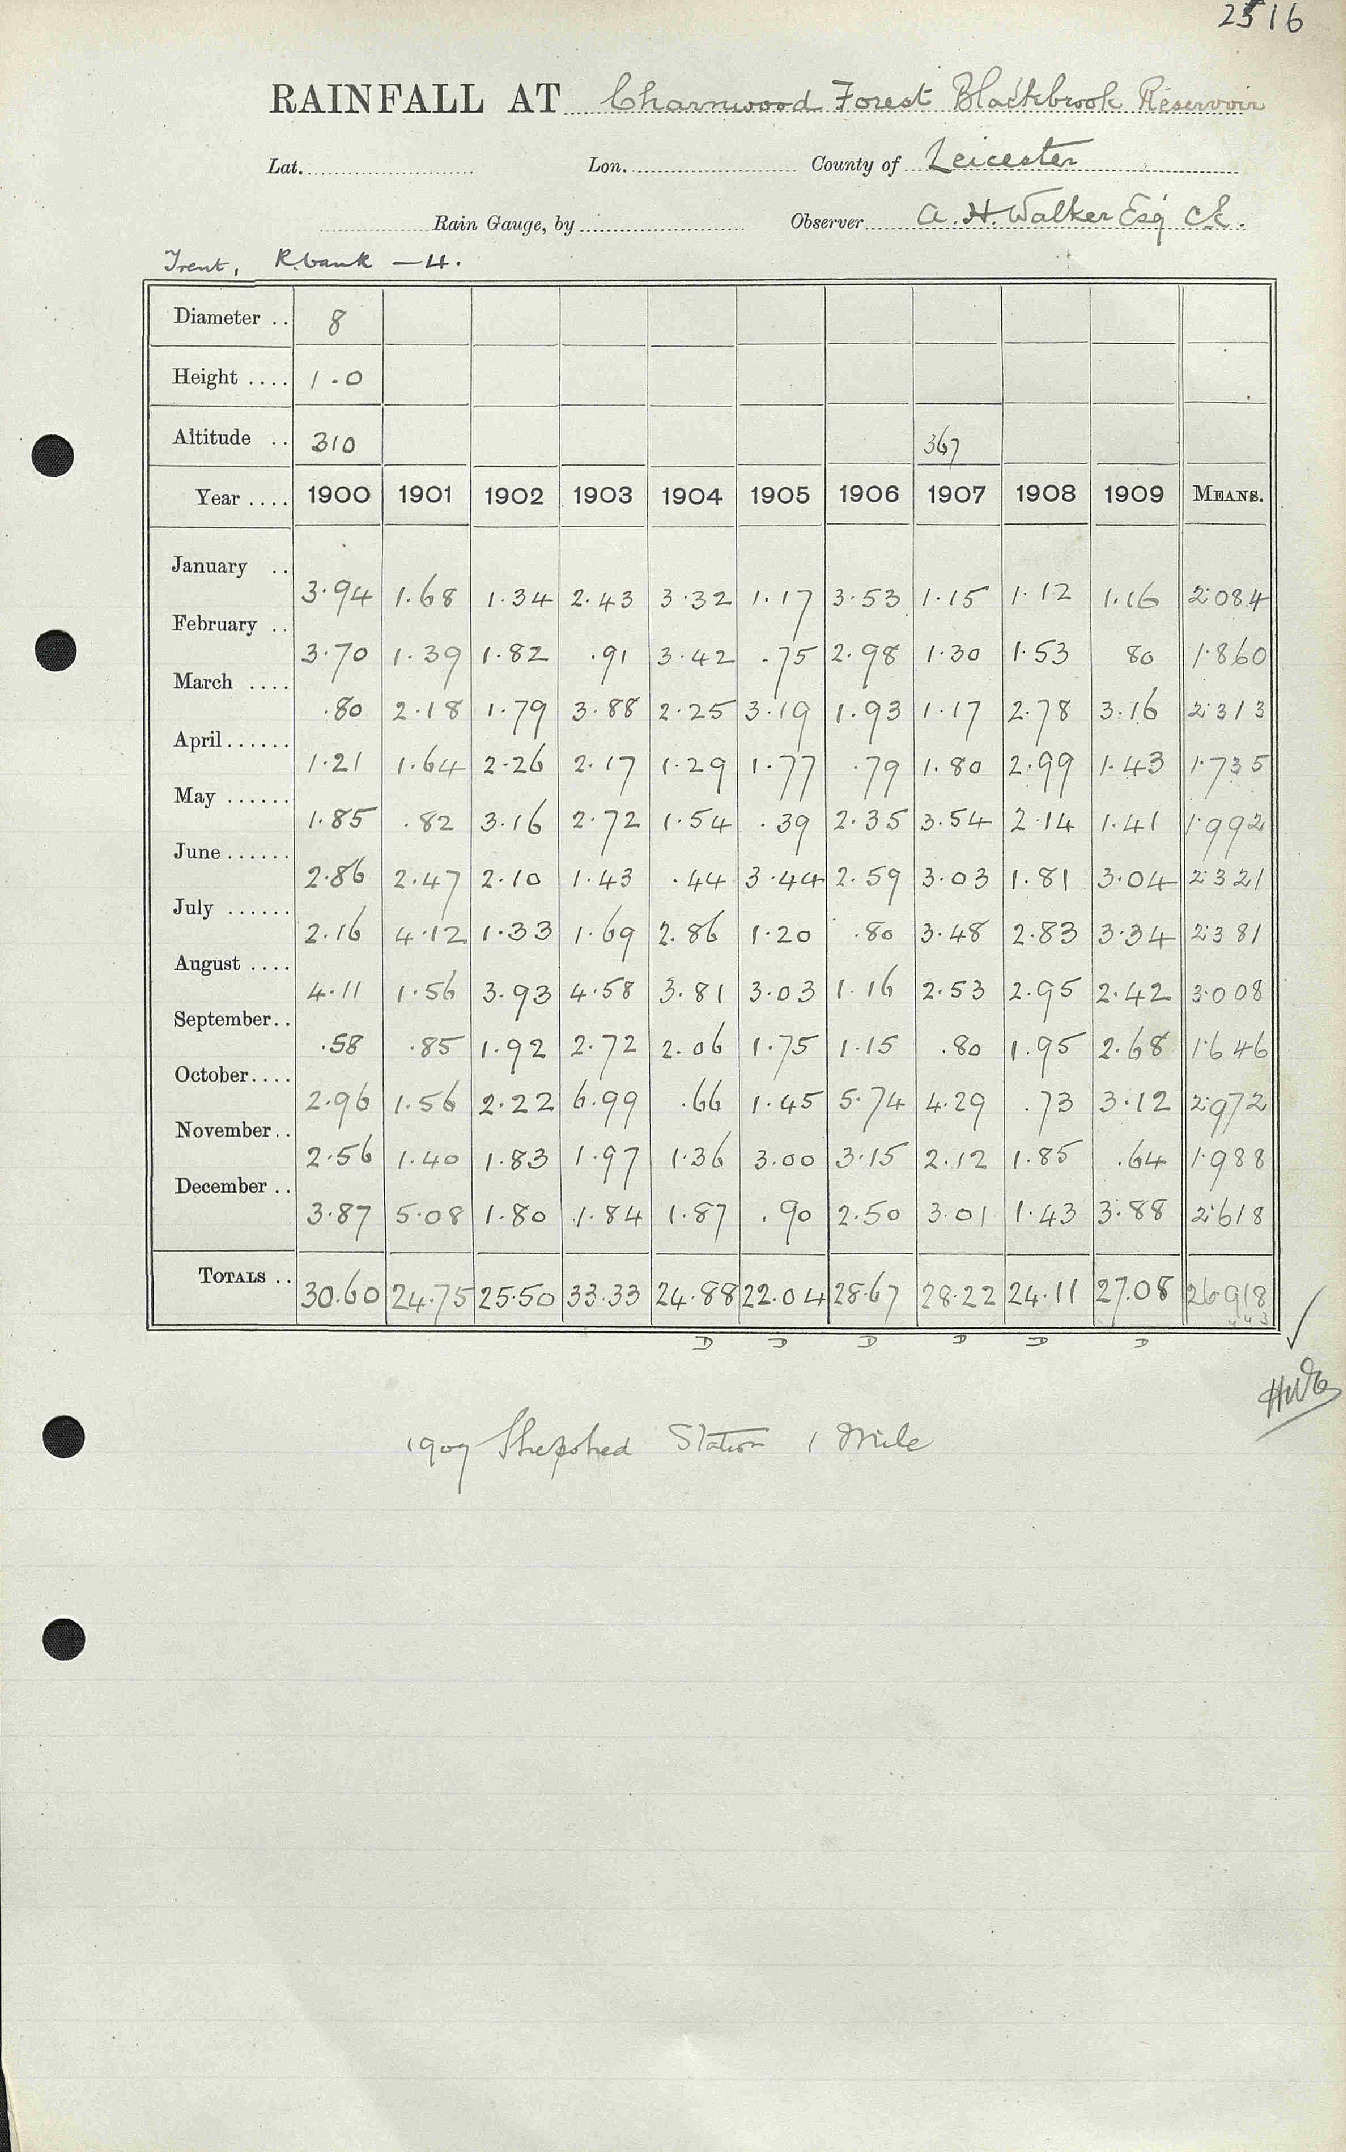 2516
RAINFALL AT Charnwood Forest Blackbrook Reservoir
Lat. Lon. County of Leicester
Rain Gauge, by Observer A. H. Walker Esq CE.
Trent, R.bank —4.
Diameter .. 8
Height .... 1.0
Altitude .. 310 367
Year .... 1900 1901 1902 1903 1904 1905 1906 1907 1908 1909 MEANS.
January .. 3.94 1.68 1.34 2.43 3.32 1.17 3.53 1.15 1.12 1.16 2.084
February .. 3.70 1.39 1.82 .91 3.42 .75 2.98 1.30 1.53 80 1.860
March .... .80 2.18 1.79 3.88 2.25 3.19 1.93 1.17 2.78 3.16 2.313
April...... 1.21 1.64 2.26 2.17 1.29 1.77 .79 1.80 2.99 1.43 1.735
May ...... 1.85 .82 3.16 2.72 1.54 .39 2.35 3.54 2.14 1.41 1.992
June...... 2.86 2.47 2.10 1.43 .44 3.44 2.59 3.03 1.81 3.04 2.321
July ...... 2.16 4.12 1.33 1.69 2.86 1.20 .80 3.48 2.83 3.34 2.381
August .... 4.11 1.56 3.93 4.58 3.81 3.03 1.16 2.53 2.95 2.42 3.008
September.. .58 .85 1.92 2.72 2.06 1.75 1.15 .80 1.95 2.68 1.646
October.... 2.96 1.56 2.22 6.99 .66 1.45 5.74 4.29 .73 3.12 2.972
November.. 2.56 1.40 1.83 1.97 1.36 3.00 3.15 2.12 1.85 .64 1.988
December .. 3.87 5.08 1.80 1.84 1.87 .90 2.50 3.01 1.43 3.88 2.618
TOTALS .. 30.60 24.75 25.50 33.33 24.88 22.04 28.67 28.22 24.11 27.08 26.918
D D D D D D
1907 Shepshed Station 1 Mile